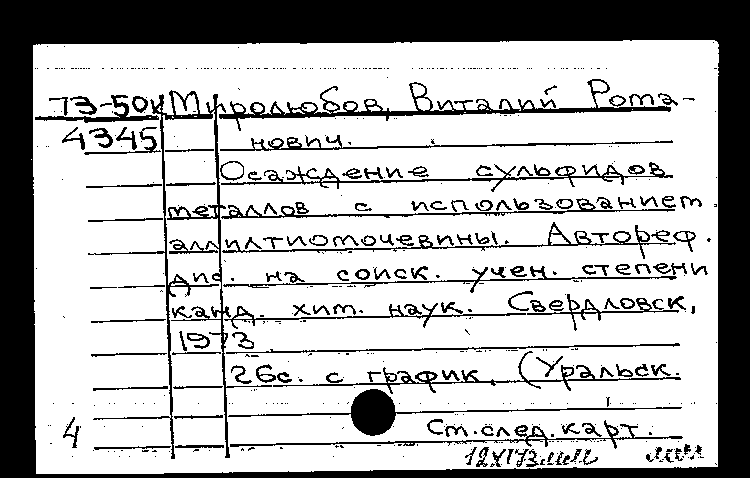 73-50к Миролюбов, Виталий Рома-
4345 нович.
Осаждение сульфидов
металлов с использованием
аллилтиомочевины. Автореф.
дис. на соиск. учен. степени
канд. хим. наук. Свердловск,
1973
26с. с график. (Уральск.
4 См.след.карт.